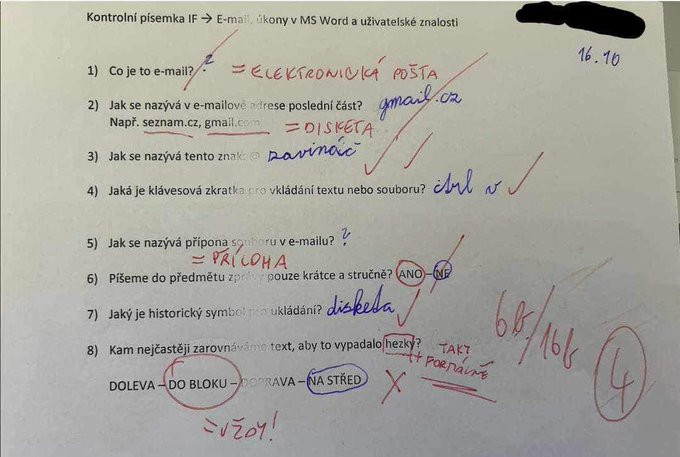 Kontrolní písemka IF → E-mail, úkony v MS Word a uživatelské znalosti
16.10
1) Co je to e-mail? ? = ELEKTRONICKÁ POŠTA
2) Jak se nazývá v e-mailové adrese poslední část? gmail.cz
Např. seznam.cz, gmail.com = DISKETA
3) Jak se nazývá tento znak: @ zavináč
4) Jaká je klávesová zkratka pro vkládání textu nebo souboru? ctrl v
5) Jak se nazývá přípona souboru v e-mailu? ?
= PŘÍLOHA
6) Píšeme do předmětu zprávy pouze krátce a stručně? ANO – NE
7) Jaký je historický symbol pro ukládání? disketa
6b/16b
4
8) Kam nejčastěji zarovnáváme text, aby to vypadalo hezky? TAKÉ
++ FORMÁLNĚ
DOLEVA – DO BLOKU – DOPRAVA – NA STŘED X
= VŽDY!